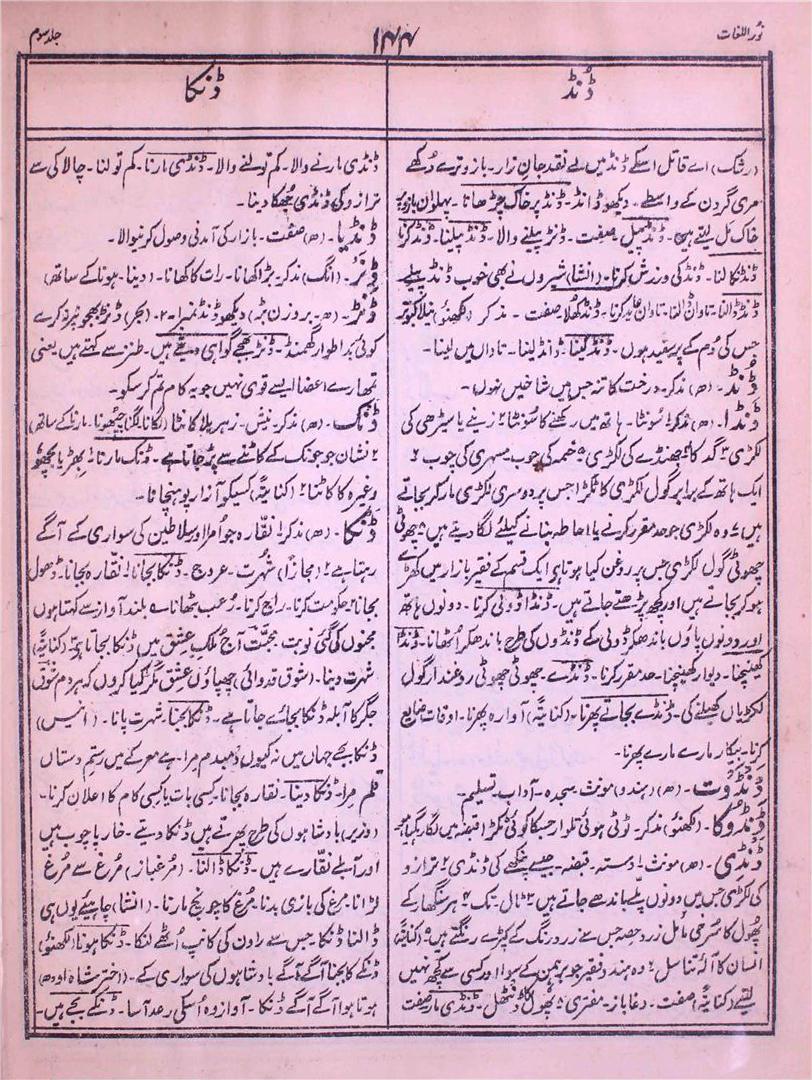 نُور اللغات
۱۴۴
جلد سوم
ڈُنڈ
ڈنکا
(رشک) اے قاتل اسکے ڈنڈ میں ہے نقد جانِ زار۔ بازو ترے دُکھے
مری گردن کے واسطے۔ دیکھو ڈانڈ۔ ڈنڈ پر خاک چڑھانا۔ پہلوان بازو پر
خاک مَل لیتے ہیں۔ ڈنڈ پیل۔ صفت۔ ڈنڑ پیلنے والا۔ ڈنڈ پیلنا۔ ڈنڈ کرنا
ڈنڈ نکالنا۔ ڈنڈ کی ورزش کرنا۔ (انشا) شیروں نے بھی خوب ڈنڈ پیلے
ڈنڈ ڈالنا۔ تاوان ڈالنا۔ تاوان عاید کرنا۔ ڈنڈ کھلا۔ صفت۔ مذکر (لکھنؤ) نیلا کبوتر
جس کی دُم کے پر سفید ہوں۔ ڈنڈ لینا۔ ڈانڈ لینا۔ تاوان میں لینا۔
ڈُنڈ۔ (ھ) مذکر۔ درخت کا تنہ جس میں شاخیں نہوں۔
ڈنڈا۔ (ھ) مذکر ۱ سونٹا۔ ہاتھ میں رکھنے کا سونٹا ۲ زینے یا سیڑھی کی
لکڑی ۳ گدکا ۴ جھنڈے کی لکڑی ۵ خیمہ کی چوب۔ مسہری کی چوب ۶
ایک ہاتھ کے برابر گول لکڑی کا ٹکڑا جس پر دوسری لکڑی مار کر بجاتے
ہیں ۷ وہ لکڑی جو حد مقرر کرنے یا احاطہ بنانے کیلئے لگا دیتے ہیں ۸ چھوٹی
چھوٹی گول لکڑی جس پر روغن کیا ہوتا ہے ایک قسم کے فقیر بازار میں کھڑے
ہو کر بجاتے ہیں اور کچھ پڑھتے جاتے ہیں۔ ڈنڈا ڈولی کرنا۔ دونوں ہاتھ
اور دونوں پاؤں باندھکر ڈولی کے ڈنڈوں کی طرح باندھکر اُٹھانا۔ ڈنڈا
کھینچنا۔ دیوار کھینچنا۔ حد مقرر کرنا۔ ڈنڈے۔ چھوٹی چھوٹی روغندار گول
لکڑیاں کھیلنے کی۔ ڈنڈے بجاتے پھرنا۔ (کنایۃً) آوارہ پھرنا۔ اوقات ضایع
کرنا۔ بیکار مارے مارے پھرنا۔
ڈَنڈَوَت۔ (ھ) (ہندو) مونث۔ سجدہ۔ آداب تسلیم۔
ڈنڈوکا۔ (لکھنؤ) مذکر۔ ٹوٹی ہوئی تلوار جسکا کوئی ٹکڑا قبضہ میں لگا رہ گیا ہو
ڈنڈی۔ (ھ) مونث ۱ دستہ۔ قبضہ۔ جیسے پنکھے کی ڈنڈی ۲ ترازو
کی لکڑی جس میں دونوں پلّے باندھے جاتے ہیں ۳ ٹال۔ تک ۴ ہر سنگھار کے
پھول کا سُرخی مائل زرد حصہ جس سے زرد رنگ کے کپڑے رنگتے ہیں ۵ (کنایۃً)
انسان کا آلۂ تناسل ۶ وہ ہندو فقیر جو برہمن کے سوا اور کسی سے کچھ نہیں
لیتے (کنایۃً) صفت۔ دغاباز۔ مفتری ۸ پھول کا ڈنٹھل۔ ڈنڈی مار صفت
ڈنڈی مارنے والا۔ کم تولنے والا۔ ڈنڈی مارنا۔ کم تولنا۔ چالاکی سے
ترازو کی ڈنڈی جھکا دینا۔
ڈنڈیا۔ (ھ) صفت۔ بازار کی آمدنی وصول کرنیوالا۔
ڈِنَر۔ (انگ) مذکر۔ بڑا کھانا۔ رات کا کھانا۔ (دینا۔ ہونا کے ساتھ)
ڈنڑ۔ (ھ۔ بروزن بڑ) دیکھو ڈنڈ نمبر ۱۔ ۲۔ (ہجر) ڈنڑ پھوتیر دکرے
کوئی بد اطوار گھمنڈ۔ ڈنڑ مجھے گواہی دیتے ہیں۔ طنز سے کہتے ہیں یعنی
تمھارے اعضا ایسے قوی نہیں جو یہ کام تم کر سکو۔
ڈنک۔ (ھ) مذکر۔ نیش۔ زہریلا کانٹا (لگانا لگنا چبھونا۔ مارنا کے ساتھ)
۲ نشان جو جونک کے کاٹنے سے پڑ جاتا ہے۔ ڈنک مارنا ۱ بھڑ یا بچھو
وغیرہ کا کاٹنا ۲ (کنایۃً) کسیکو آزار پہنچانا۔
ڈنکا۔ (ھ) مذکر ۱ نقّارہ جو امرا اور سلاطین کی سواری کے آگے
رہتا ہے ۲ (مجازاً) شہرت۔ عروج۔ ڈنکا بجانا ۱ نقّارہ بجانا۔ ڈھول
بجانا ۲ حکومت کرنا۔ راج کرنا۔ رُعب بٹھانا ۳ بلند آواز سے کہتا ہوں
مجنوں کی گئی نوبت محبت آج ملکِ عشق میں ڈنکا بجاتا ہے ۴ (کنایۃً)
شہرت دینا۔ (شوق قدوائی) چھپاؤں عشق مگر کیا کروں کہ ہر دم شوق
جگر کا آبلہ ڈنکا بجائے جاتا ہے۔ ڈنکا بجنا۔ شہرت پانا۔ (انیس)
ڈنکا بجے جہاں میں نہ کیوں دمبدم مرا۔ ہے معرکے میں رستمِ دستاں
قلم مرا۔ ڈنکا دینا۔ نقارہ بجانا۔ کسی بات یا کسی کام کا اعلان کرنا۔
(وزیر) بادشاہوں کی طرح پھرتے ہیں ڈنکا دیتے۔ خار پا چوب ہیں
اور آبلے نقّارے ہیں۔ ڈنکا ڈالنا۔ (مرغباز) مُرغ سے مُرغ
لڑانا۔ مرغ کی بازی بدنا۔ مُرغ کا چونچ مارنا۔ (انشا) چاہیئے یوں ہی
ڈالنا ڈنکا۔ جس سے راون کی کانپ اُٹھے لنکا۔ ڈنکا ہونا (لکھنؤ)
ڈنکے کا بجنا آگے آگے بادشاہوں کی سواری کے۔ (اختر شاہ اودھ)
ہوتا ہوا آگے آگے ڈنکا۔ آواز وہ اُسکی رعد آسا۔ ڈنکے بجے ہیں۔